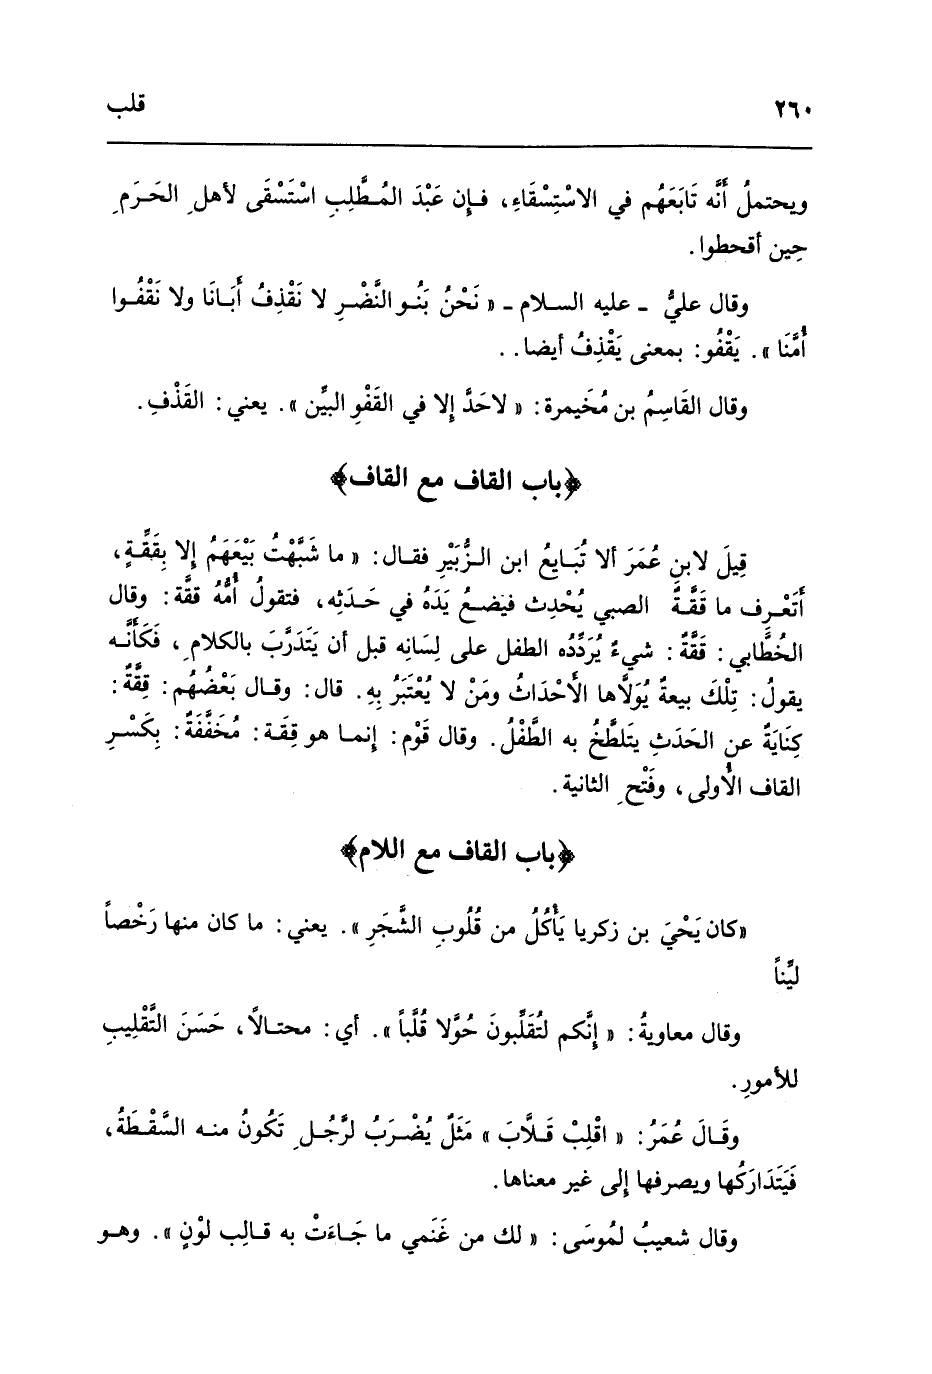 ٢٦٠
قلب
ويحتملُ أَنَّه تَابَعَهُم في الاسْتِسْقَاءِ، فإن عَبْدَ المُطَّلِبِ اسْتَسْقَى لأهلِ الحَرَمِ
حِين أقحطوا.
وقال عليُّ - عليه السلام - « نَحْنُ بَنُو النَّضْرِ لا نَقْذِفُ أَبَانَا ولا نَقْفُوا
أُمَّنَا ». يَقْفُو: بمعنى يَقْذِفُ أيضا. .
وقال القَاسِمُ بن مُخَيمرة: « لاحَدَّ إلا في القَفْوِ البيِّن ». يعني: القَذْفِ.
﴿باب القاف مع القاف﴾
قِيلَ لابنِ عُمَرَ ألا تُبَايعُ ابن الزُّبَيْرِ فقال: « ما شَبَّهْتُ بَيْعَهَمُ إلا بِقَقَّةٍ،
أَتَعْرِف ما قَقَّةُ الصبي يُحْدِث فيَضعُ يَدَهُ في حَدَثِه، فتقولُ أُمُّهُ ققَّة: وقال
الخُطَّابي: قَقَّةٌ: شيءٌ يُرَدِّدُه الطفل على لِسَانِه قبل أن يَتَدَرَّبَ بالكلامِ، فَكَأَنَّه
يقولُ: تِلْكَ بيعةٌ يُوَلاَّها الأَحْدَاثُ ومَنْ لا يُعْتَبَرُ بِهِ. قال: وقال بَعْضُهُم: قِقَّةٌ:
كِنَايَةٌ عن الحَدَثِ يتَلطَّخُ به الطَّفْلُ. وقال قَوْم: إنما هو قِقَة: مُخَفَّفَةٌ: بِكَسْرِ
القاف الأُولى، وفَتْحِ الثانية.
﴿باب القاف مع اللام﴾
«كان يَحْيَ بن زكريا يَأْكُلُ من قُلُوبِ الشَّجَرِ ». يعني: ما كان منها رَخْصاً
ليِّناً
وقال معاويةُ: « إنَّكم لتُقَلِّبونَ حُوَّلا قُلَّباً ». أي: محتالاً، حَسَنَ التَّقْلِيبِ
للأمورِ.
وقَالَ عُمَرُ: « اقْلِبْ قَلاَّبَ » مَثَلٌ يُضْرَبُ لرَّجُلٍ تَكُونُ منه السَّقْطَةُ،
فَيَتَدَارَكُها ويصرفها إلى غير معناها.
وقال شعيبُ لمُوسَى: « لك من غَنَمي ما جَاءَتْ به قالِب لوْنٍ ». وهو